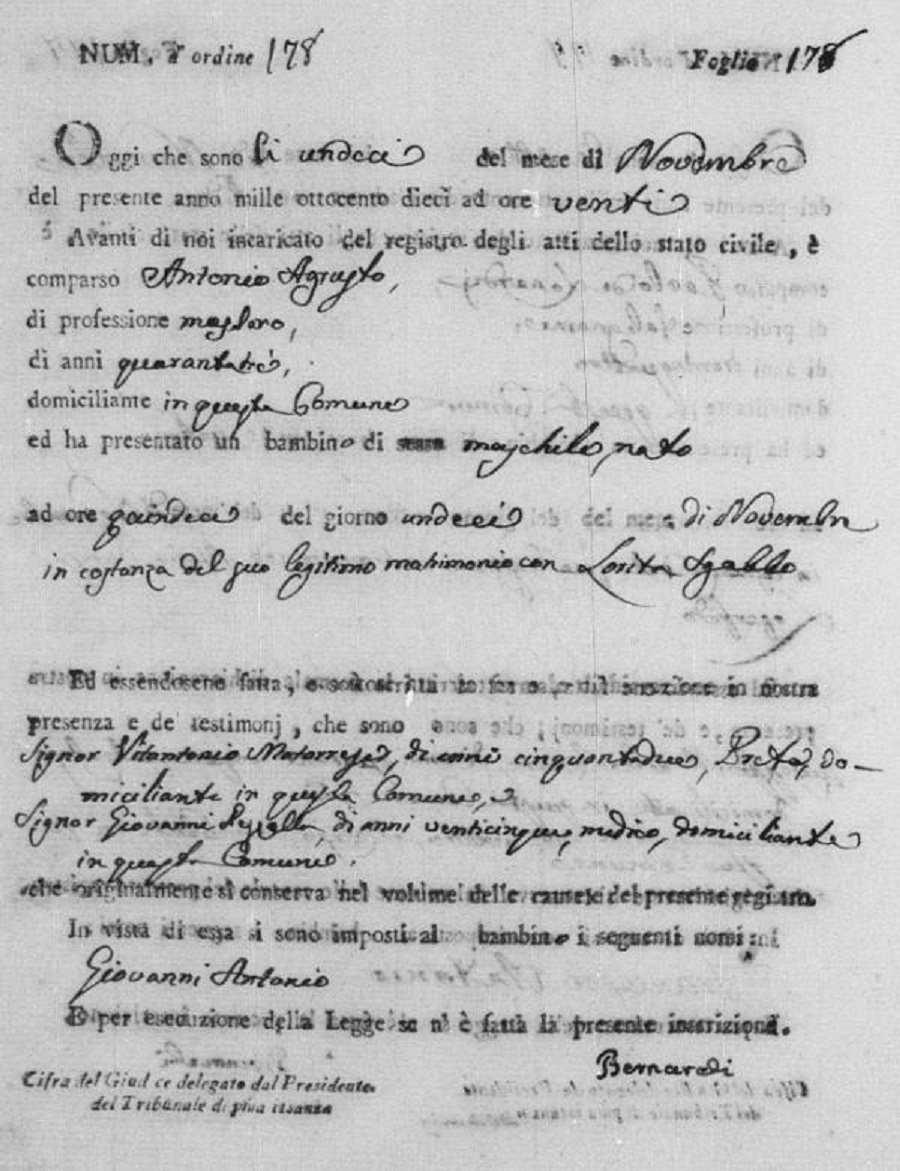 NUM. d'ordine 178
Foglio 178
Oggi che sono li undeci del mese di Novembre
del presente anno mille ottocento dieci ad ore venti
Avanti di noi incaricato del registro degli atti dello stato civile, è
comparso Antonio Agrusto,
di professione mastoro,
di anni quarantatrè,
domiciliante in questa Comune
ed ha presentato un bambino di maschile, nato
ad ore quindeci del giorno undeci del mese di Novembre
in costanza del suo legitimo matrimonio con Lorita Sgobbo
Ed essendosene fatta, e sottoscritta in nostra
presenza e de' testimonj, che sono
Signor Vitantonio Matarrese, di anni cinquantadue, Prete, do-
miciliante in questa Comune, e
Signor Giovanni di anni venticinque, medico, domiciliante
in questa Comune.
che originalmente si conserva nel volume delle cautele del presente registro.
In vista di essa si sono imposti al bambino i seguenti nomi
Giovanni Antonio
E per esecuzione della Legge se n' è fatta la presente inscrizione.
Bernardi
Cifra del Giud ce delegato dal Presidente
del Tribunale di prima istanza